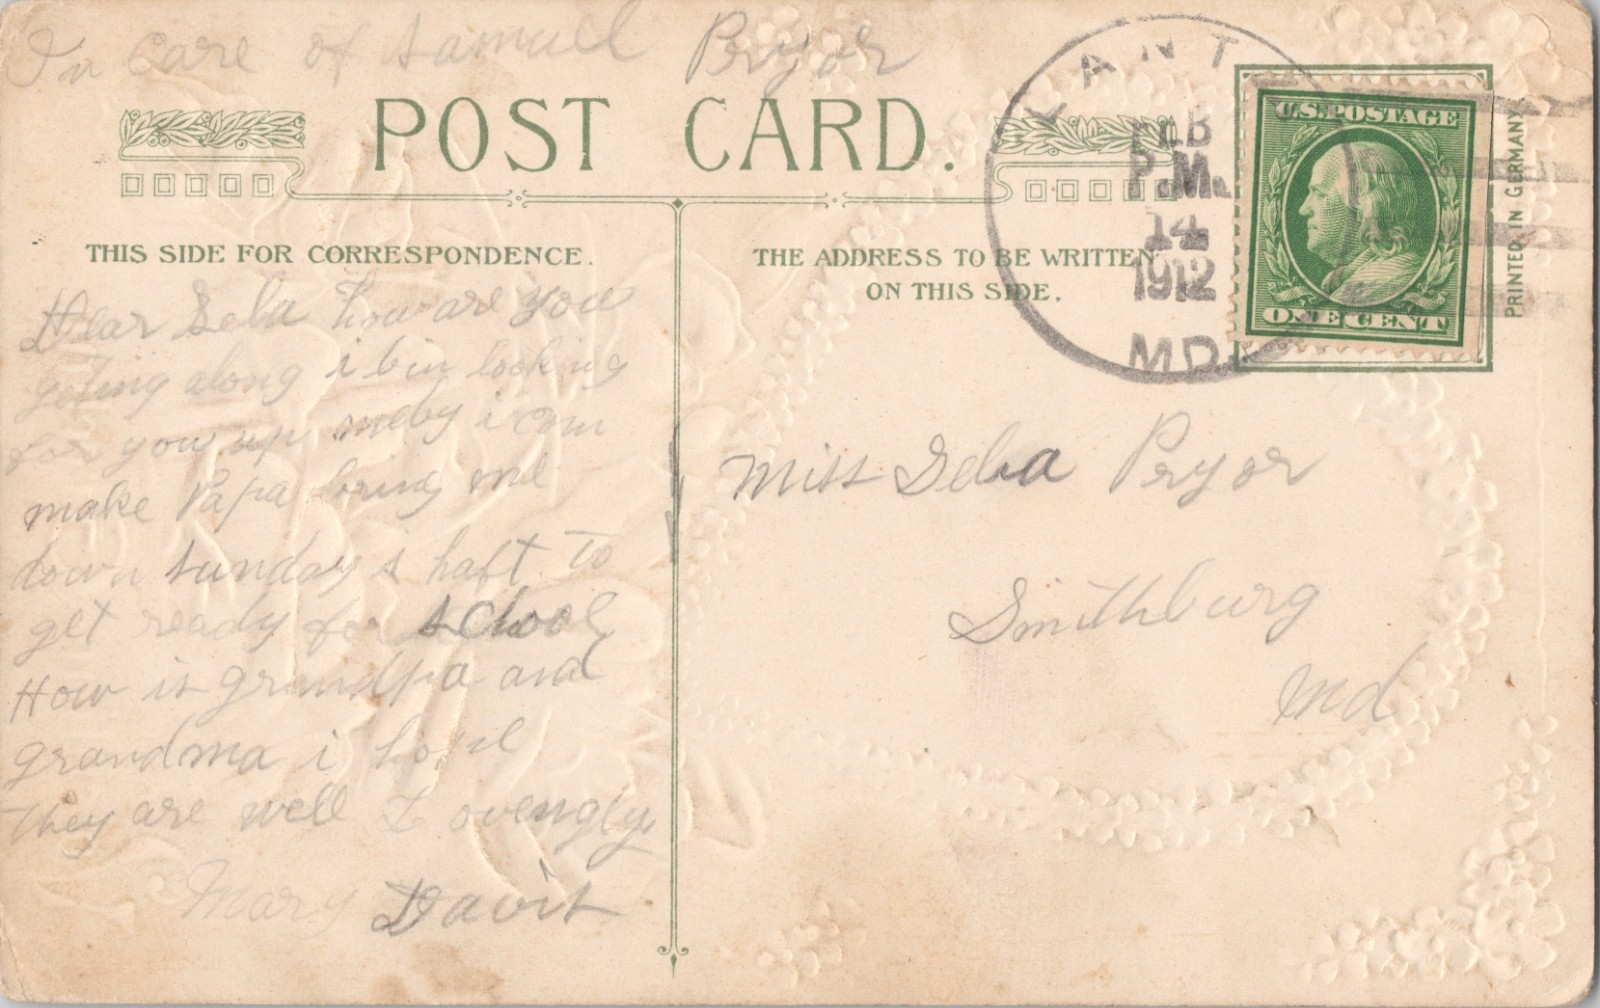 In care of Samuel Pryor
POST CARD.
LANTZ
FEB
P.M.
14
1912
MD.
U.S. POSTAGE
ONE CENT
PRINTED IN GERMANY
THIS SIDE FOR CORRESPONDENCE.
THE ADDRESS TO BE WRITTEN
ON THIS SIDE.
Dear Selia how are you
geting along i bin looking
for you up meby i can
make Papa bring me
down sunday i haft to
get ready for school
How is grandpa and
grandma i hope
they are well Lovengly
Mary Davis
Miss Selia Pryor
Smithburg
Md